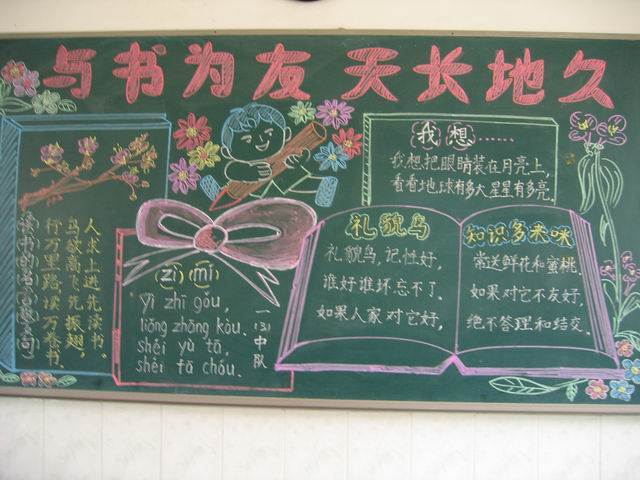 与书为友 天长地久
读书的名言(警句)
行万里路,读万卷书.
鸟欲高飞先振翅,
人求上进先读书。
(zì) (mí)
Yì zhī gǒu,
liǎng zhāng kǒu.
shéi yù tā,
shéi tā chóu.
一(3)中队
我想……
我想把眼睛装在月亮上,
看看地球有多大星星有多亮.
礼貌鸟
礼貌鸟,记性好,
谁好谁坏忘不了.
如果人家对它好,
知识多来咪
常送鲜花和蜜桃.
如果对它不友好,
绝不答理和结交.